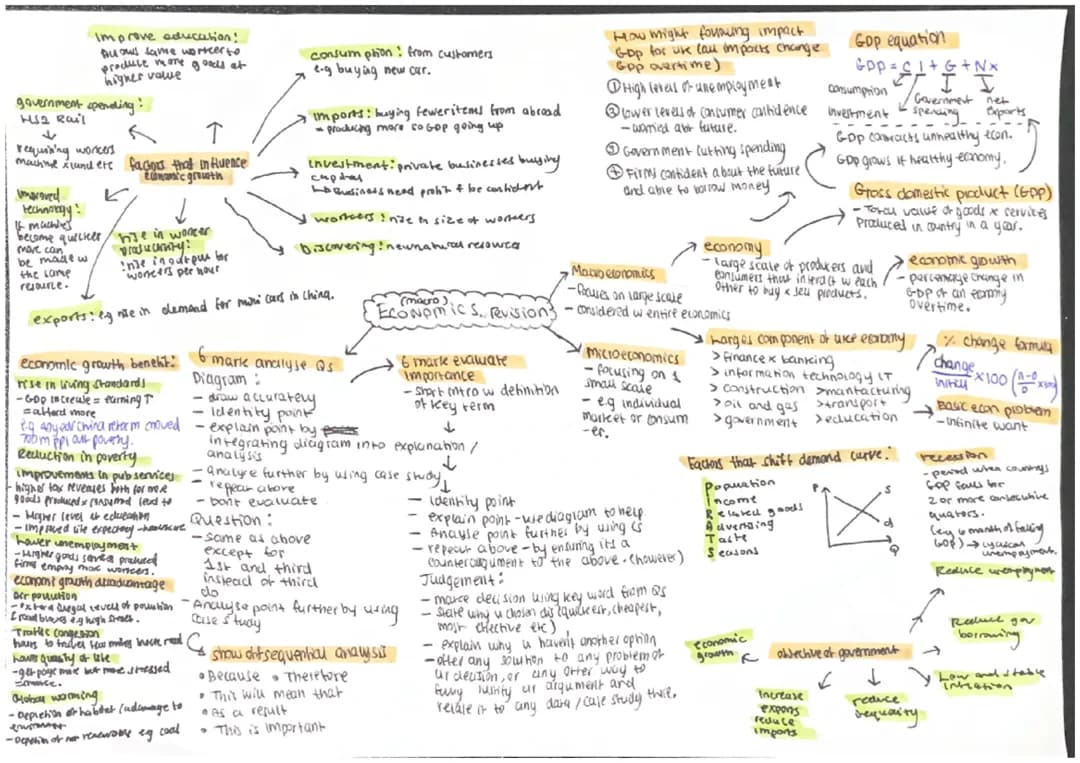 Improve education:
Allows same worker to
produce more goods at
higher value
government spending:
HS2 Rail
requiring workers
machine x land etc
Factors that influence
economic growth
Improved
technology:
If machines
become quicker
more can
be made w
the same
resource.
rise in worker
productivity:
rise in output for
workers per hour
exports: e.g rise in demand for mini cars in China.
consumption: from customers
e.g buying new car.
imports: buying fewer items from abroad
= producing more so GDP going up
investment: private businesses buying
capital
↳ business need profit & be confident
workers: rise in size of workers
Discovering: new natural resources
How might following impact
GDP for UK (all impacts change
GDP overtime)
① High levels of unemployment
② lower levels of consumer confidence
- worried abt future.
③ Government cutting spending
④ Firms confident about the future
and able to borrow money
GDP equation
GDP = C I + G + Nx
consumption
investment
Government
spending
net
exports
GDP contracts unhealthy econ.
GDP grows if healthy economy.
Gross domestic product (GDP)
- Total value of goods x services
Produced in country in a year.
economy
- large scale of producers and
consumers that interact w each
other to buy x sell products.
economic growth
- percentage change in
GDP of an economy
overtime.
Macroeconomics
- focuses on large scale
- considered w entire economics
(macro)
Economics revision
Microeconomics
- focusing on 1
small scale
- e.g individual
market or consum
-er.
Larges component of uk economy
> Finance x banking
> information technology IT
> construction > manfacturing
> oil and gas > transport
> government > education
% change formula
change
initial
×100 (n-o/o × 100)
Basic econ problem
- infinite want
economic growth benefit:
rise in living standards
- GDP increase = earning ↑
= afford more
Reduction in poverty
improvements in pub services
- higher tax revenues both for more
goods produced x consumed lead to
- Higher level of education
- improved life expectancy - healthcare
Lower unemployment
- Higher goods
firms employ more workers.
economic growth disadvantage
Air pollution
e.g high street.
Traffic congestion
Lower quality of life
- get paid more but more stressed
Global warming
- Depletion of habitat / adamage to
environment
- Depletion of non renewable e.g coal
6 mark analyse Qs
Diagram:
- draw accurately
- identity point
- explain point by
integrating diagram into explanation /
analysis
- analyse further by using case study
- repeat above
- dont evaluate
Question:
- same as above
except for
1st and third
instead of third
do
- Analyse point further by using
case study
show of sequential analysis
• Because • Therefore
• This will mean that
• As a result
• This is important
6 mark evaluate
importance
- short intro w definition
of key term
- identity point
- explain point - use diagram to help.
- Analyse point further by using CS
- repeat above - by ensuring its a
counterargument to the above. (however)
Judgement:
- make decision using key word from QS
- state why u chosen dis (quickest, cheapest,
most effective etc)
- explain why u havent another option
- offer any solution to any problem of
ur decision, or any other way to
fully justify ur argument and
relate it to any data / case study there.
Factors that shift demand curve:
Population
Income
Related goods
Advertising
Taste
Seasons
P
S
d
Q
recession
- period when countrys
GDP falls for
2 or more consecutive
quaters.
(e.g 6 month of falling
GDP) →
unemployment.
Reduce unemployment
Reduce gov
borrowing
Low and stable
inflation
objective of government
economic
growth
increase
exports
reduce
imports
reduce
inequality